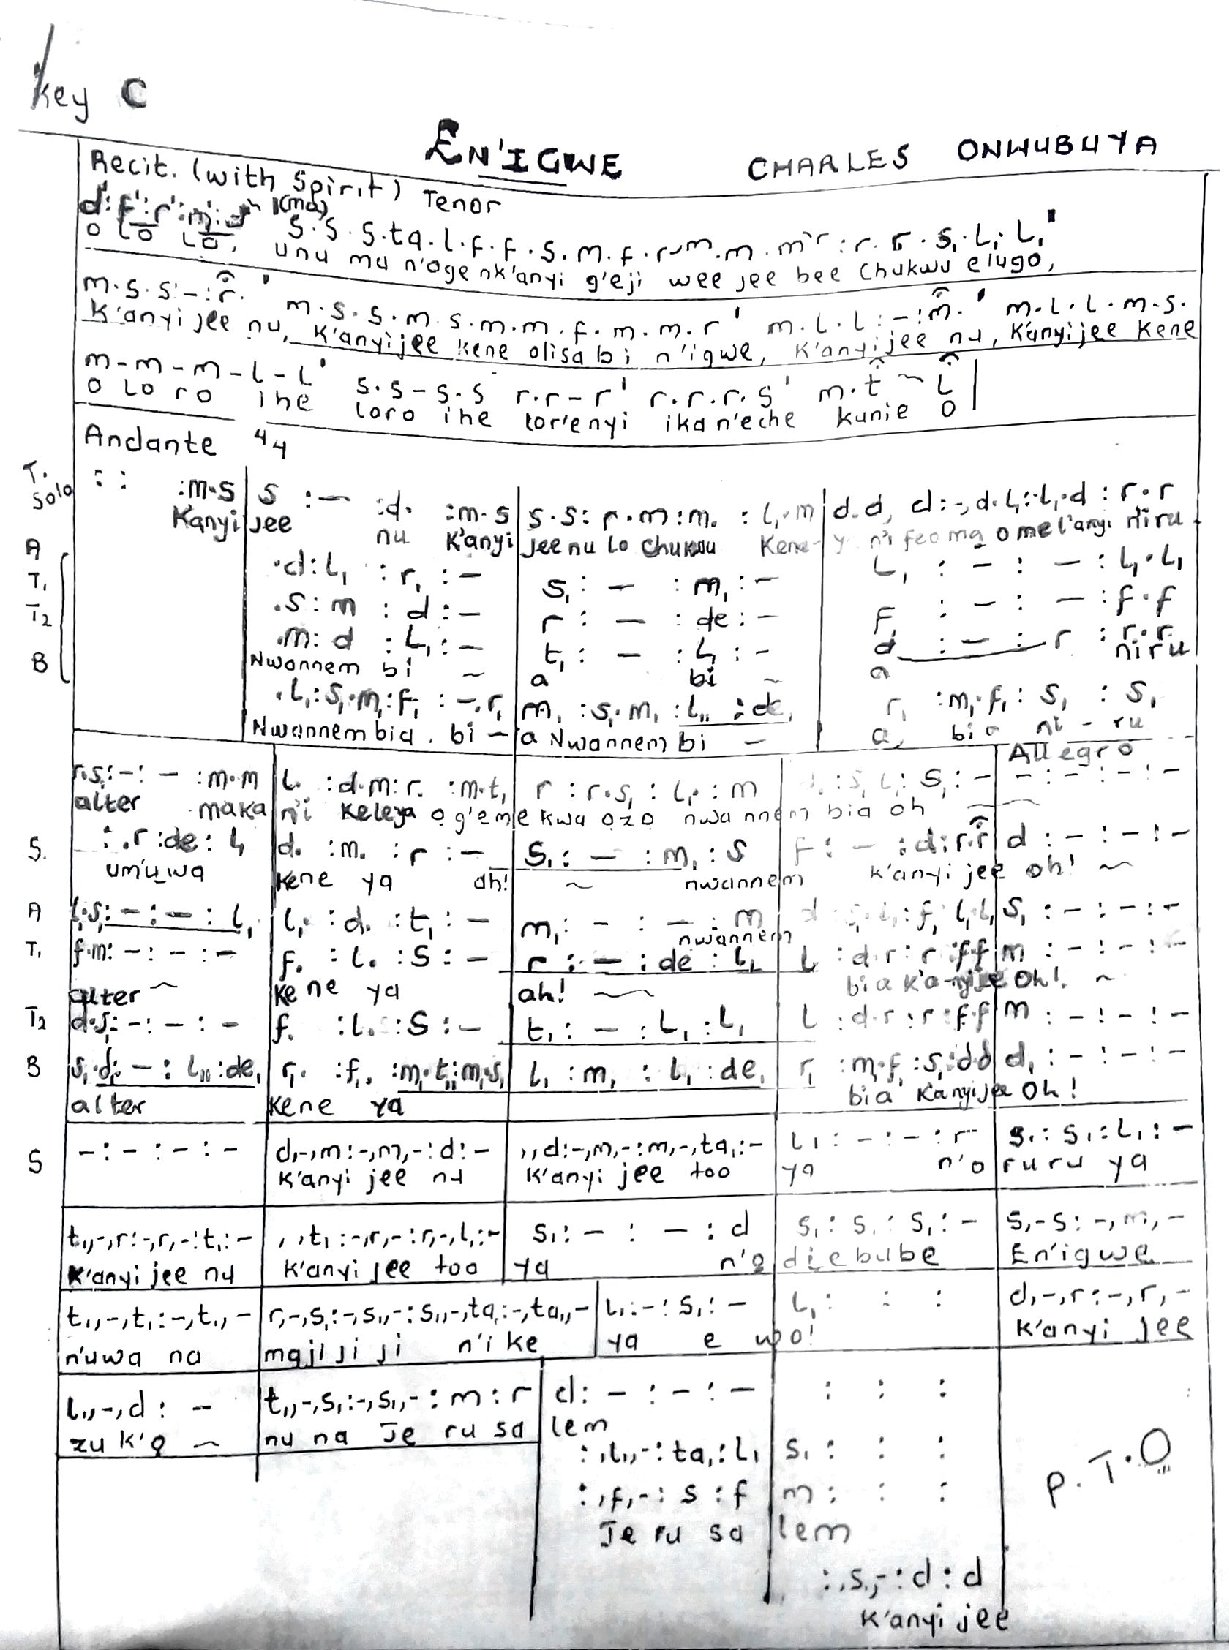 Key C
EN'IGWE
CHARLES ONWUBUYA
Recit. (with Spirit) Tenor
d':f':r':m':
S.S S.ta.l.f.f.s.m.f.r
O LO LO, unu mu n'oge nk'anyi g'eji wee jee bee Chukwu elugo,
m.s.s:-:r. m.s.s.m.s.m.m.f.m.m.r' m.l.l:-:m.' m.l.l.m.s.
K'anyi jee nu, K'anyi jee kene olisa bi n'igwe, K'anyi jee nu, K'anyi jee kene
m-m-m-l-l' s.s-s.s r.r-r' r.r.r.s' m.t ~ l
O LO ro ihe loro ihe tor'enyi ika n'eche kunie O
Andante 4/4
T. Solo : : :m.s s :- :d. :m.s s.s: r.m:m. : l,.m d.d, d:-,d.l,:l,.d : r.r
Kanyi jee nu K'anyi jee nu lo chukwu Kene-y n'i feoma o me l'anyi niru
A .d:l, :r, :- s, : - :m, :- l, : - : - : l,.l,
T1 .s:m :d :- r : - :de :- f, : - : - : f.f
T2 .m:d :l, :- t, : - :l, :- d : - : r : r.r
Nwannem bi ~ a bi ~ a niru
B .l,:s,.m,:f, :-.r, m, :s,.m, :l,, :de, r, :m,.f, : s, : s,
Nwannem bia . bi - a Nwannem bi - a, bi a ni - ru
Allegro
r.s,:-:- :m.m l. :d.m:r. :m.t, r : r.s, : l, : m :s, l,: s,:- - : - : - : -
alter maka n'i keleya o g'eme kwa ozo nwa nnem bia oh
S. : .r :de : l, d. :m. : r :- s, : - : m, : s f : - : d: r.r d : - : - : -
um'uwa kene ya ah! ~ nwannem k'anyi jee oh! ~
A l,.s,:-:-: l, l,. :d. :t, :- m, : - : - : m :f, l,l, s, : - : - : -
nwannem
T1 f.m: - : - : - f. : l. : s :- r : - : de : l, l : d.r : r.ff m : - : - : -
alter ~ kene ya ah! ~ bia k'a-nyi jee oh! ~
T2 d.s,: - : - : - f. :l. :s :- t, : - : l, : l, l : d.r : r.ff m : - : - : -
B s,.d,: - : l,, :de, r,. :f,. :m,.t,,:m,.s, l, : m, : l, : de, r, :m,.f, :s,:dd d, : - : - : -
alter kene ya bia k'anyi jee oh!
S - : - : - : - d,-,m:-,m,-:d:- ,,d:-,m,-:m,-,ta,:- l, : - : - : r s, : s, : l, : -
K'anyi jee nu K'anyi jee too ya n'o ruru ya
t,,-,r:-,r,-:t,:- ,,t,:-,r,-:r,-,l,:- s, : - : - : d s, : s, : s, : - s,-s:-,m,-
K'anyi jee nu K'anyi jee too ya n'o diebube En'igwe
t,,-,t,:-,t,,- r,-,s,:-,s,,-:s,,-,ta,:-,ta,,- l,:-: s,:- l, : : : d,-,r:-,r,-
n'uwa na majijiji n'ike ya e wo! K'anyi jee
l,,-,d : - t,,-,s,:-,s,,-: m : r d : - : - : - : : :
zu k'o ~ nu na Je ru sa lem
:,l,,-: ta,: l, s, : : :
:,f,-: s : f m : : :
Je ru sa lem
P.T.O
:,s,-: d : d
K'anyi jee